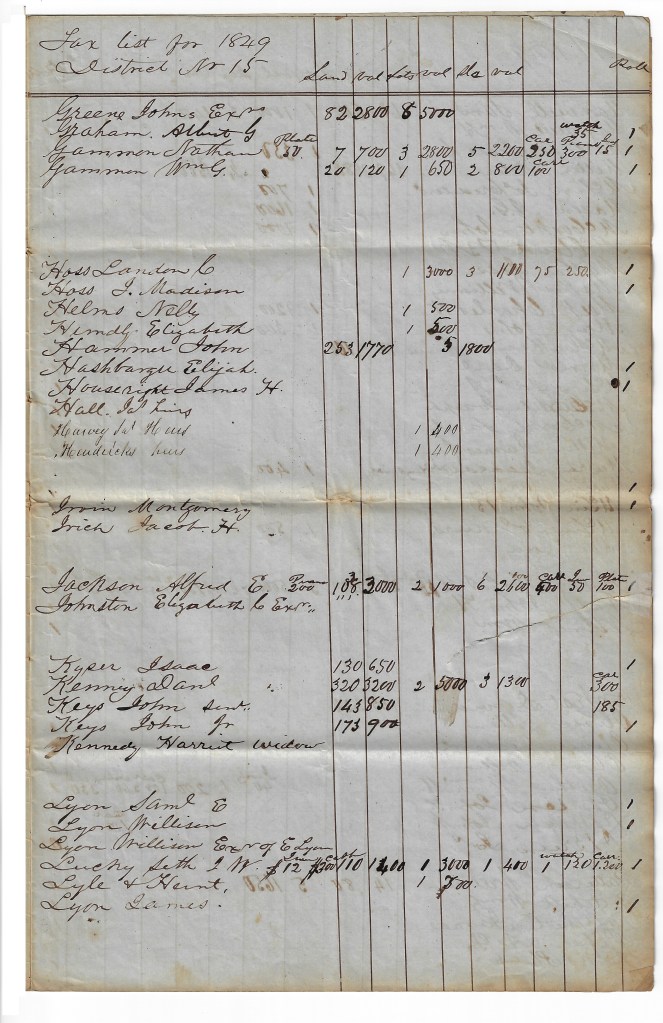 Tax list for 1849
District No 15
Land val Lots val Sls val Poll
Greene Johns Exrs 82 2800 8 5000
Graham. Albert G watch 35 1
Gammon Nathan Plate 50. 7 700 3 2800 5 2200 Car 250 Piano 300 15 1
Gammon Wm G 20 120 1 650 2 800 Carr 100 1
Hoss Landon C 1 3000 3 1100 75 250. 1
Hoss J. Madison 1
Helms Nelly 1 500
Hendly Elizabeth 1 500
Hammer John 253 1770 5 1800
Hashbarger Elijah. 1
Houseright James H. 1
Hall. Jas heirs
Harvey Jas Heirs 1 400
Hendricks heirs 1 400
Irvin Montgomery 1
Irich Jacob. H. 1
Jackson Alfred E Piano 200 108 3000 2 1000 6 2600 Carr 400 50 Plate 100 1
Johnston Elizabeth C Exr,,
Kyser Isaac 130 650 1
Kenney Danl 320 3200 2 5000 3 1300 Car 300
Keys John senr. 143 850 185
Keys John Jr 173 900 1
Kennedy Harriet widow
Lyon Saml E 1
Lyon Willison 1
Lyon Willison Exr of E Lyon
Lucky Seth J W. $12 $300 110 1400 1 3000 1 400 watch 1 120 Carr 1.300 1
Lyle & Hunt, 1 500.
Lyon James. 1